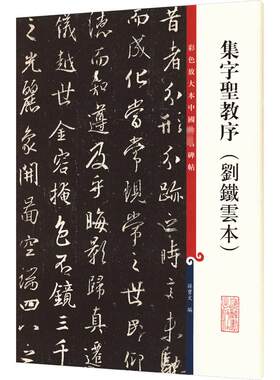 集字聖教序（劉鐵雲本）
彩色放大本中國碑帖
孫寶文 編
昔者分形分跡之時言未馳
而成化當常現常之世民仰
德而知遵及乎晦影歸真遷
儀越世金容掩色不鏡三千
之光麗象開圖空端四八之